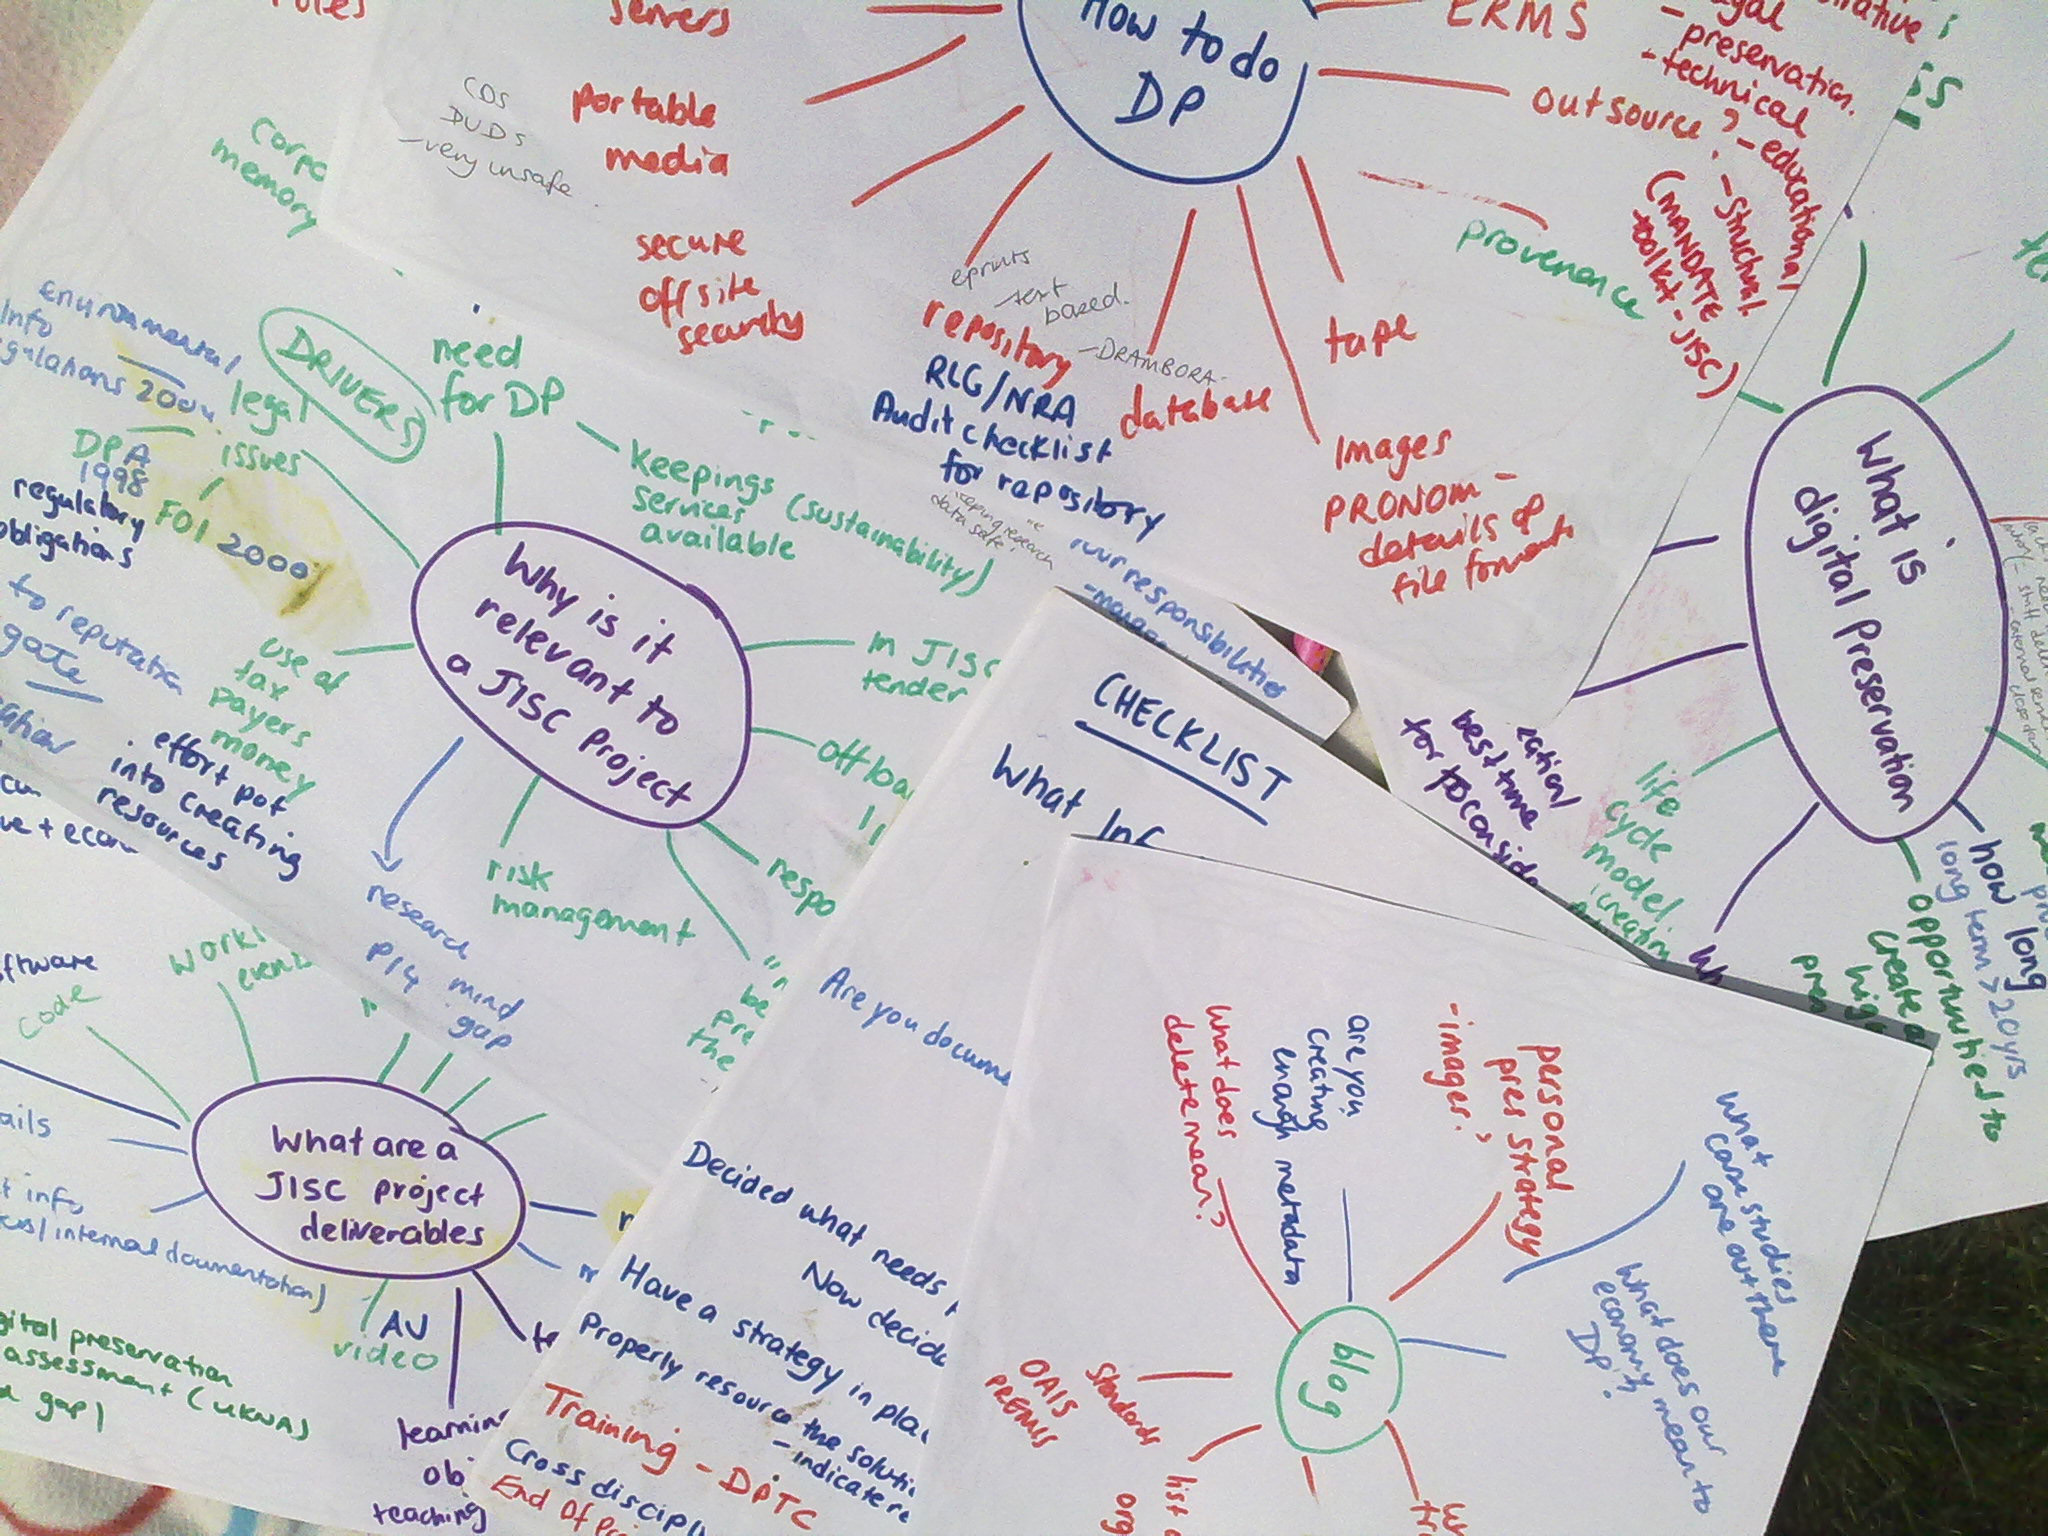 servers
How to do
DP
ERMS
- preservation.
- technical
- educational
- structural
(MANDATE
toolkit - JISC)
outsource?
portable
media
CDs
DVDs
- very unsafe.
secure
offsite
security
eprints
- text
based.
repository
- DRAMBORA
RLG/NRA
Audit checklist
for repository
database
tape
Images
PRONOM -
details of
file formats
provenance
"keeping research
data safe"
memory
DRIVERS
need
for DP
legal
issues
environmental
info
2004
DPA
1998
FOI 2000
regulatory
obligations
to reputation
gate
use of
tax
payers
money
effort put
into creating
resources
Keepings (sustainability)
services
available
Why is it
relevant to
a JISC Project
in JISC
tender
risk
management
research
mind
gap
responsibilities
What is
digital Preservation
best time
for to
life
cycle
model
how long
long term > 20yrs
opportunities to
create a
CHECKLIST
What Inf
Are you docume
Decided what needs
Now decide
Have a strategy in plac
Properly resource the soluti
- indicate
Training - DPTC
Cross discipl
End Of
code
What are a
JISC project
deliverables
info
/internal documentation)
AV
video
learning
teaching
preservation
assessment (UKWA)
gap)
blog
what does
delete mean?
are you
creating
enough metadata
personal
pres strategy
- images?
What
case studies
are out there
What does our
economy mean to
DP?
Standards
OAIS
PREMIS
list
org